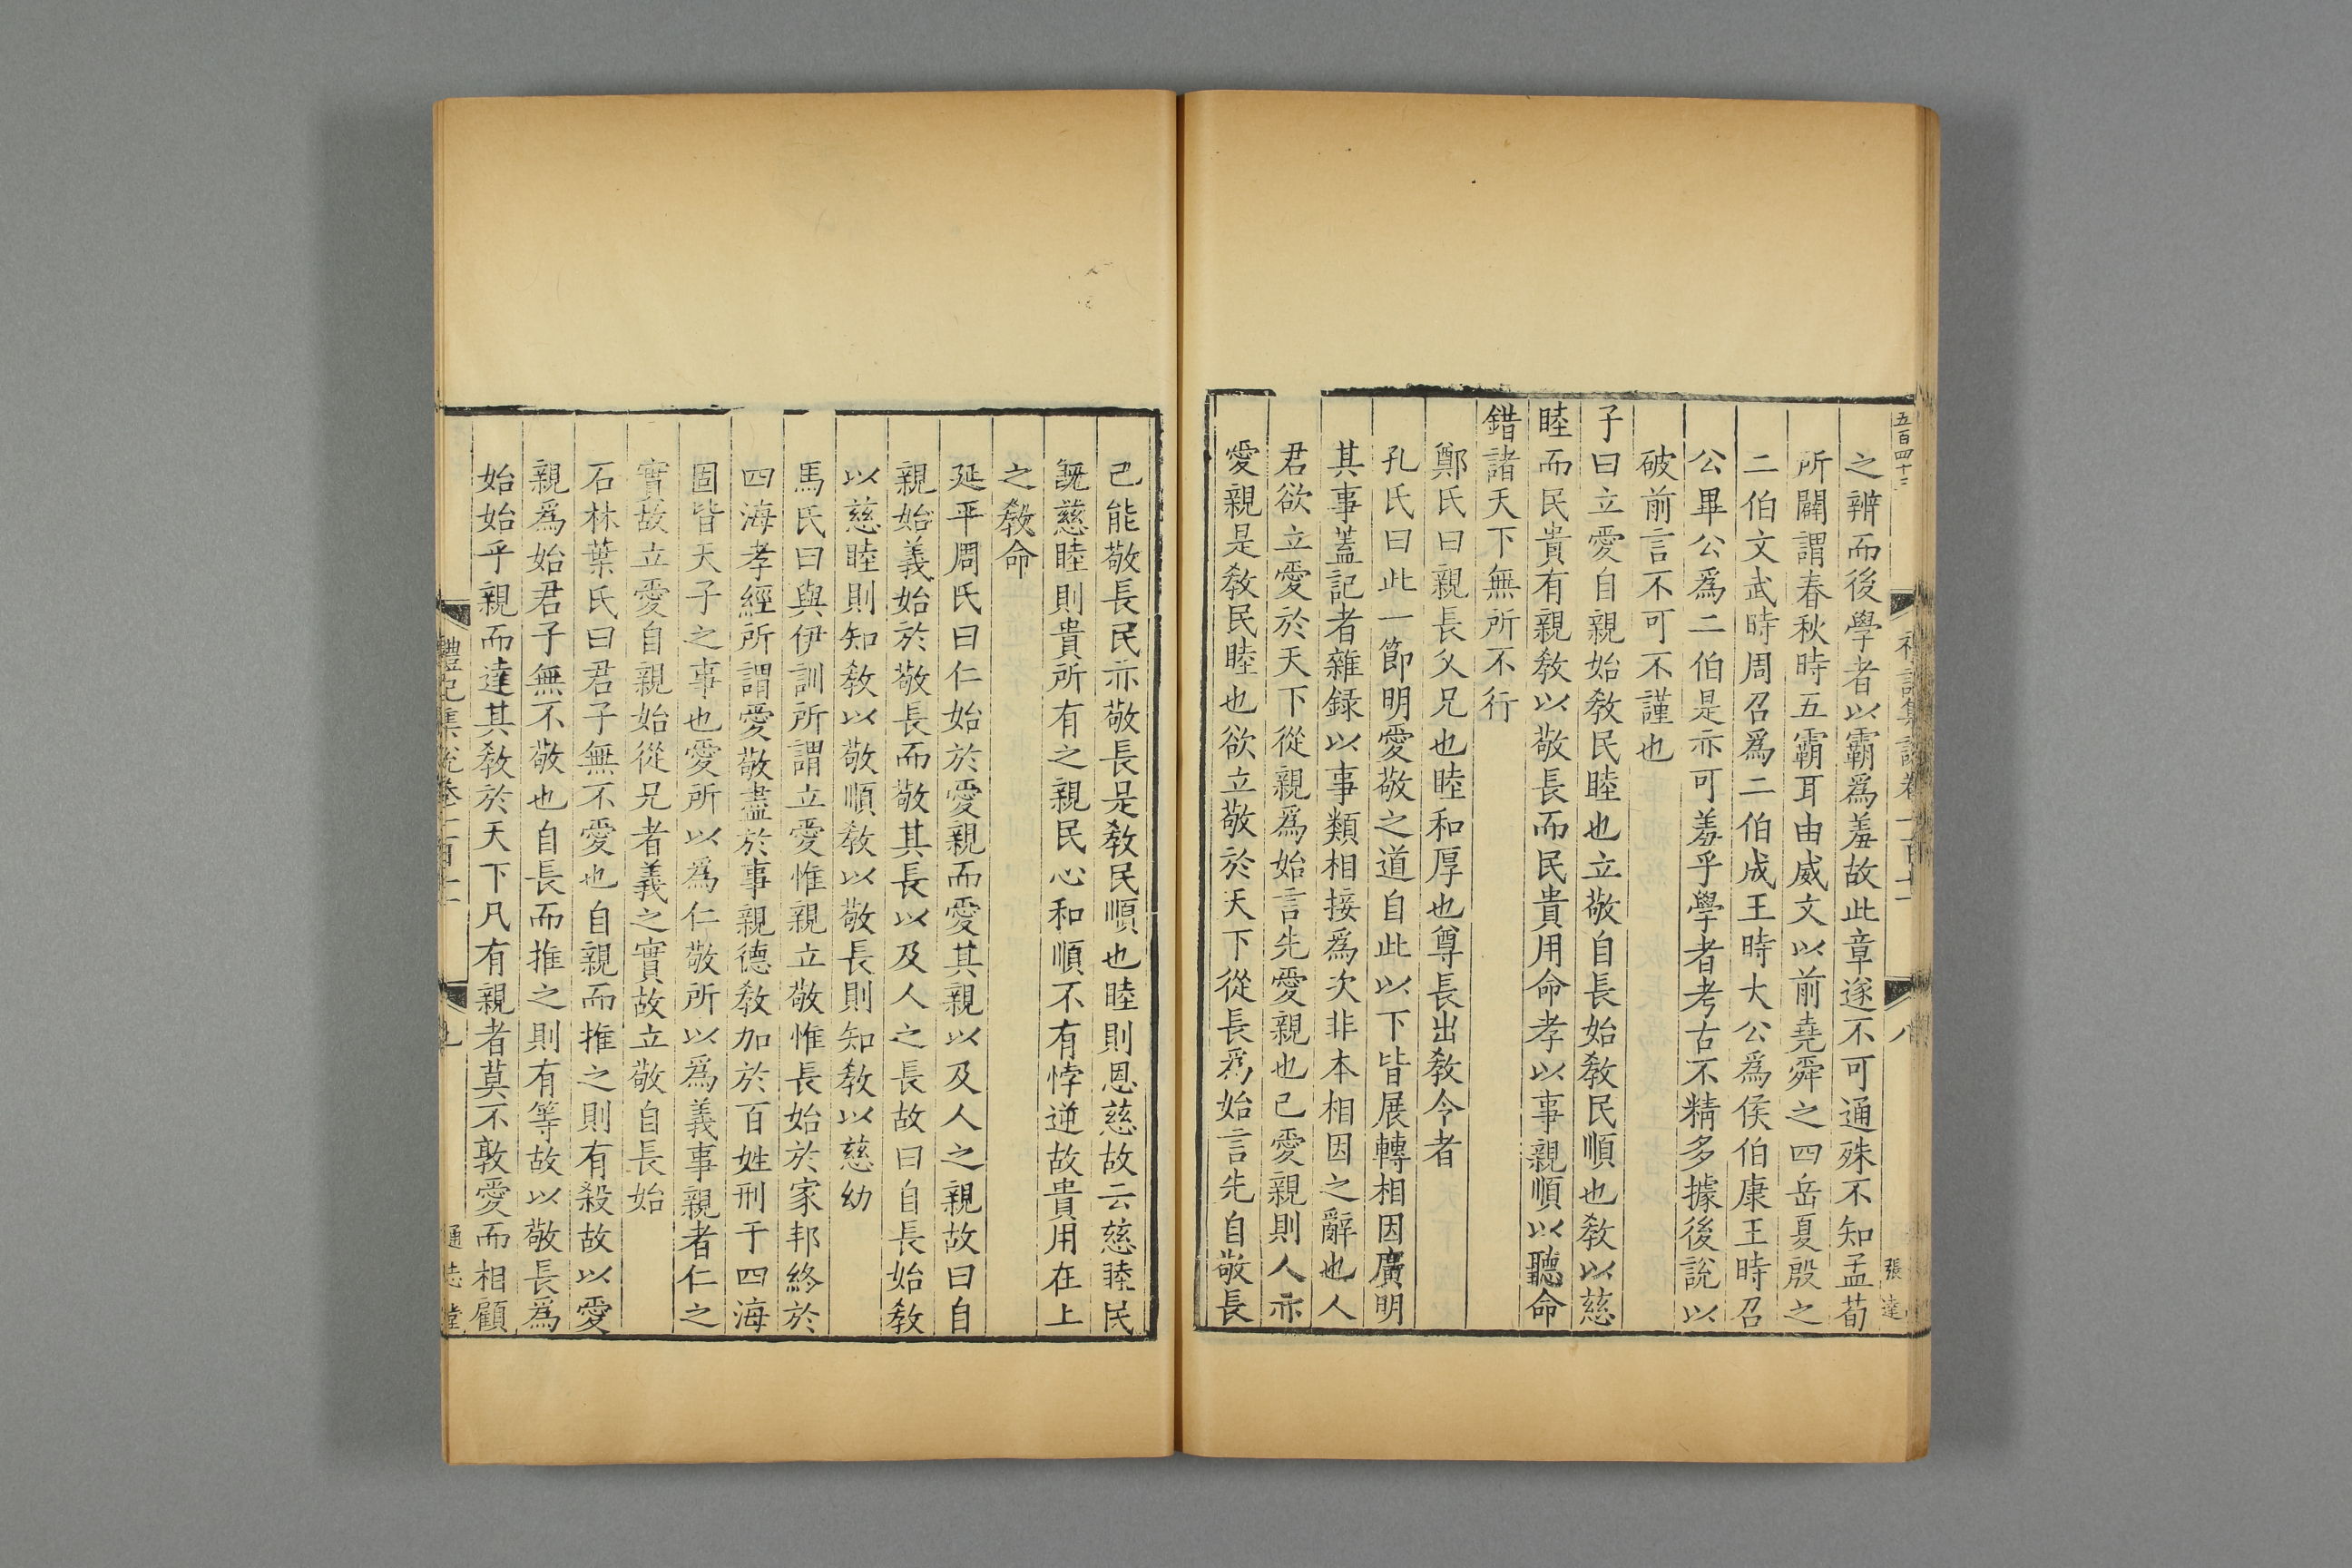 五百四十三
八
張達
之辨而後學者以霸爲羞故此章遂不可通殊不知孟荀
所闢謂春秋時五霸耳由威文以前堯舜之四岳夏殷之
二伯文武時周召爲二伯成王時大公爲侯伯康王時召
公畢公爲二伯是亦可羞乎學者考古不精多據後說以
破前言不可不謹也
子曰立愛自親始教民睦也立敬自長始教民順也教以慈
睦而民貴有親教以敬長而民貴用命孝以事親順以聽命
錯諸天下無所不行
鄭氏曰親長父兄也睦和厚也尊長出教令者
孔氏曰此一節明愛敬之道自此以下皆展轉相因廣明
其事蓋記者雜録以事類相接爲次非本相因之辭也人
君欲立愛於天下從親爲始言先愛親也己愛親則人亦
愛親是教民睦也欲立敬於天下從長爲始言先自敬長
己能敬長民亦敬長是教民順也睦則恩慈故云慈睦民
既慈睦則貴所有之親民心和順不有悖逆故貴用在上
之教命
延平周氏曰仁始於愛親而愛其親以及人之親故曰自
親始義始於敬長而敬其長以及人之長故曰自長始教
以慈睦則知教以敬順教以敬長則知教以慈幼
馬氏曰與伊訓所謂立愛惟親立敬惟長始於家邦終於
四海孝經所謂愛敬盡於事親德教加於百姓刑于四海
固皆天子之事也愛所以爲仁敬所以爲義事親者仁之
實故立愛自親始從兄者義之實故立敬自長始
石林葉氏曰君子無不愛也自親而推之則有殺故以愛
親爲始君子無不敬也自長而推之則有等故以敬長爲
始始乎親而達其教於天下凡有親者莫不敦愛而相顧
禮記集說卷一百十二
九
通志堂